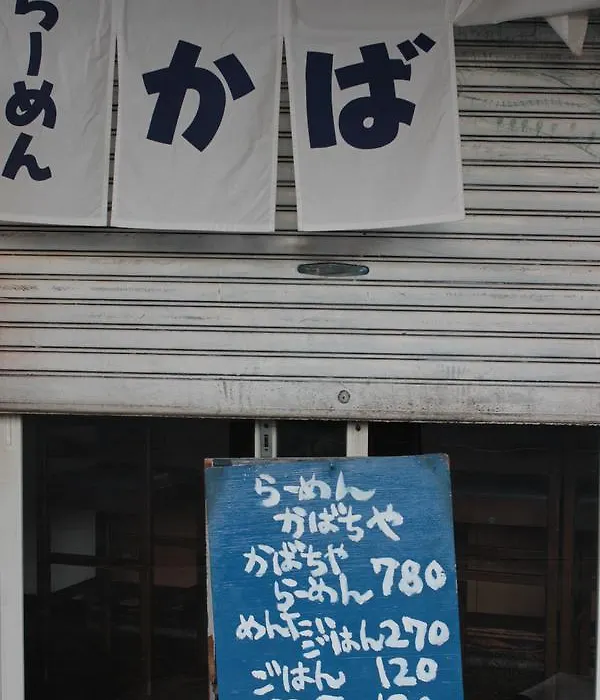 らーめん
かば
らーめん
かばちゃ
かばちゃ
らーめん 780
めんたい
ごはん 270
ごはん 120